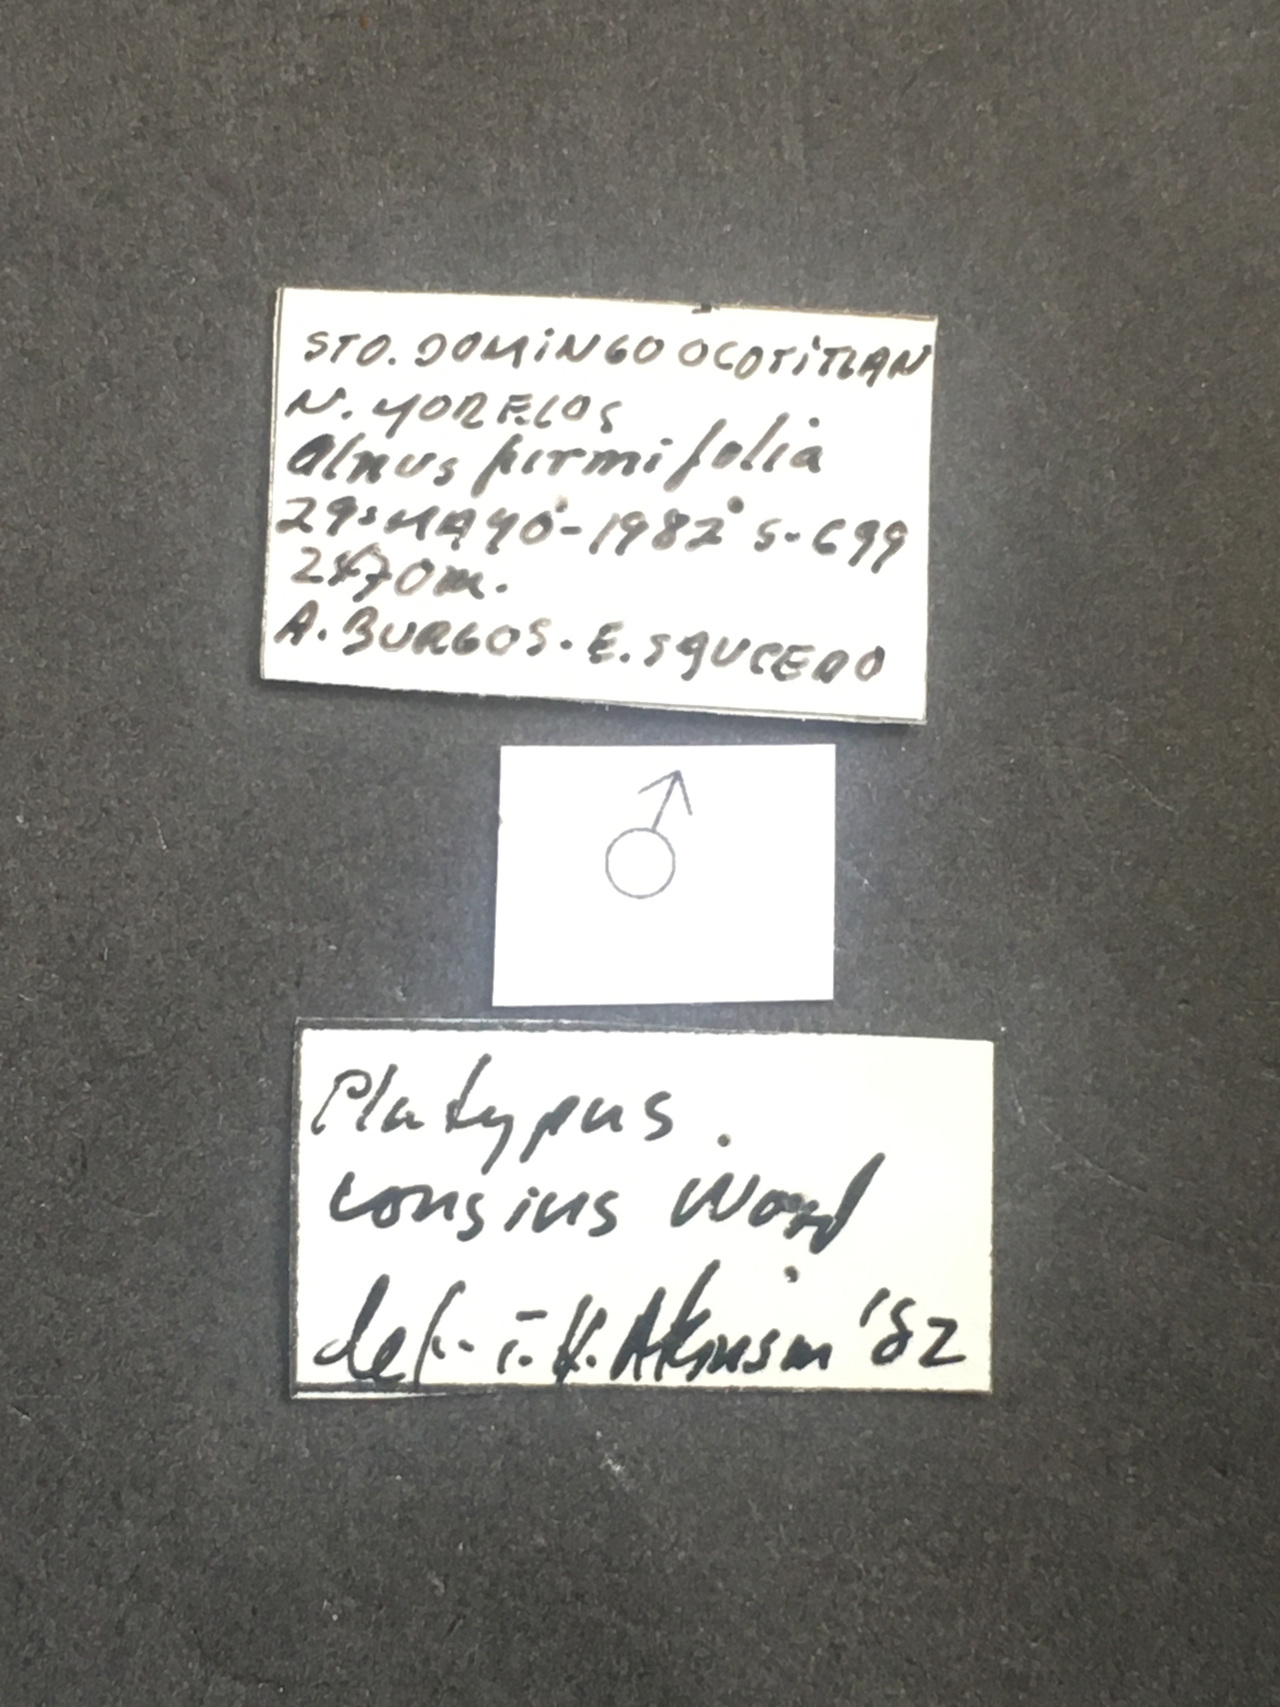 STO. DOMINGO OCOTITLAN
N. MORELOS
Alnus firmifolia
29-MAYO-1982 S-699
2470m.
A. BURGOS. E. SAUCEDO
♂
Platypus
consius Wood
det. T.H. Atkinson '82